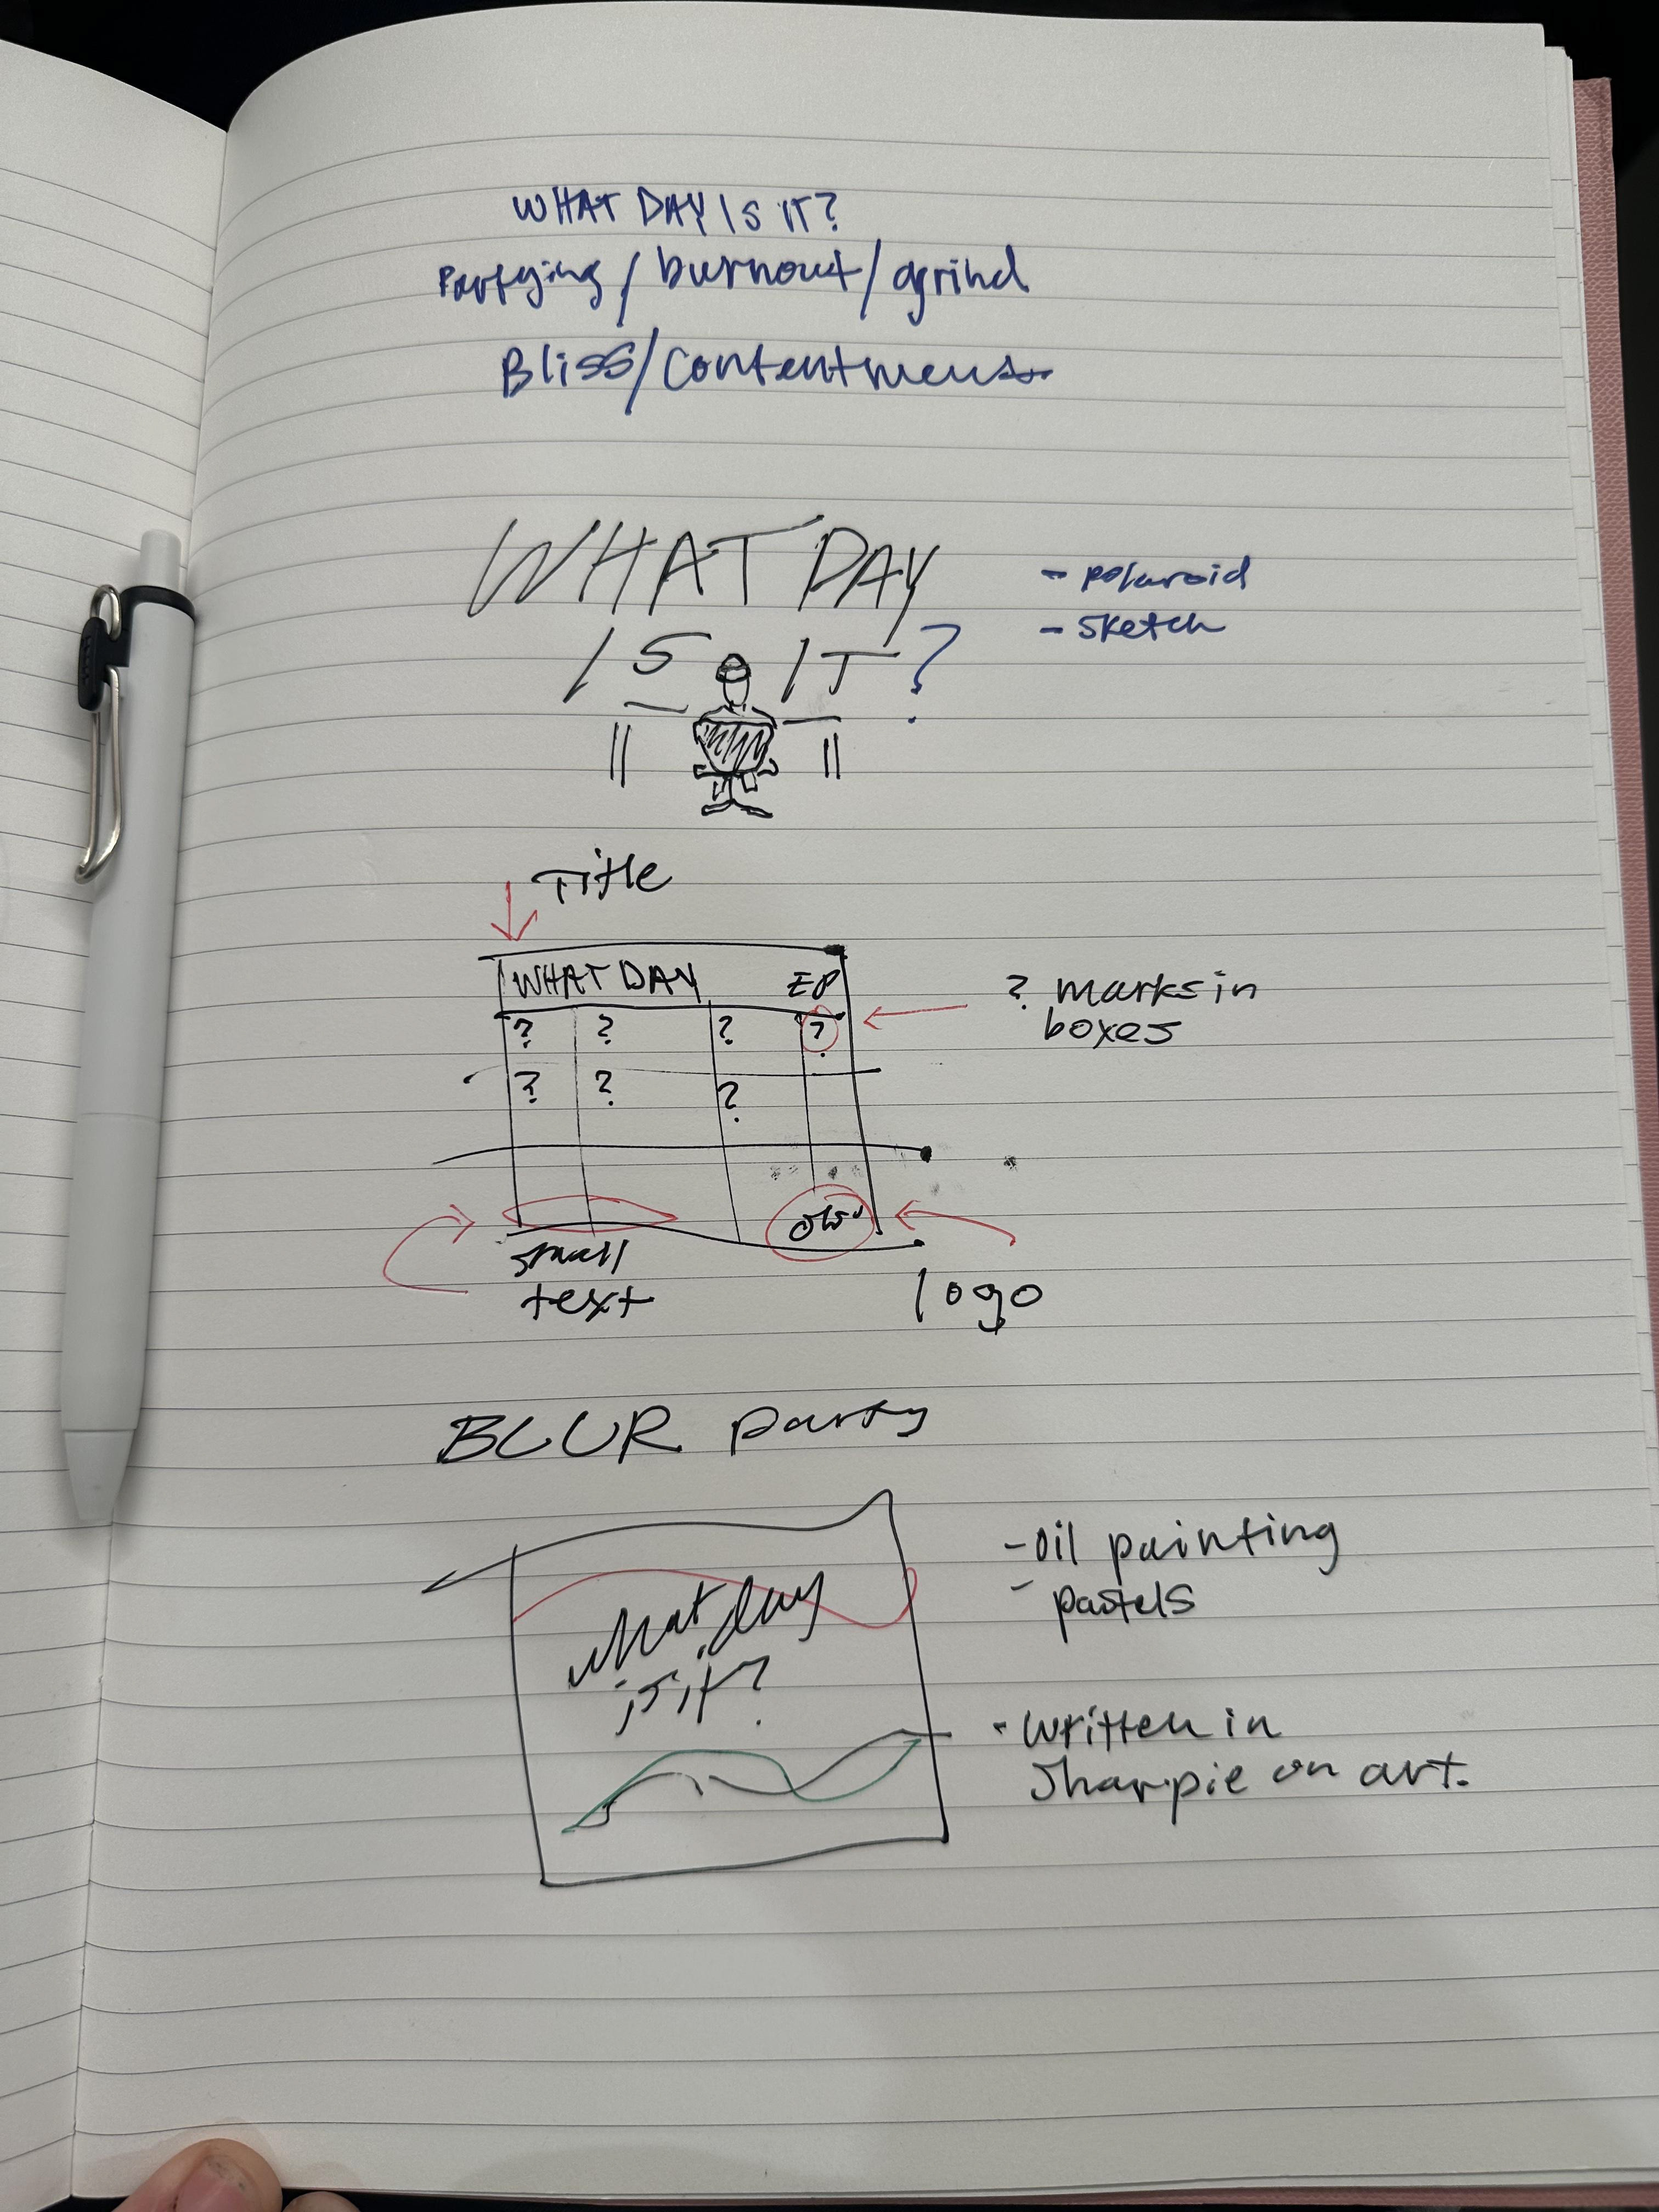 WHAT DAY IS IT?
Partying / burnout / grind
Bliss/contentment
WHAT DAY
IS IT?
- polaroid
- sketch
Title
WHAT DAY EP
? ? ? ?
? marks in
boxes
? ? ?
small
text
logo
BLUR party
What day
is it?
- oil painting
- pastels
- written in
Sharpie on art.